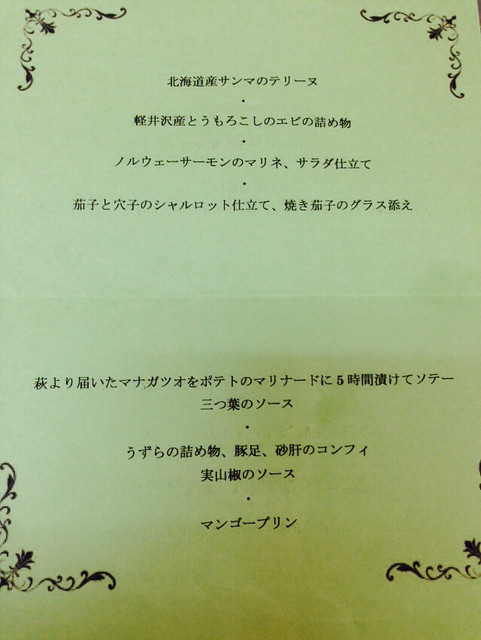 北海道産サンマのテリーヌ
・
軽井沢産とうもろこしのエビの詰め物
・
ノルウェーサーモンのマリネ、サラダ仕立て
・
茄子と穴子のシャルロット仕立て、焼き茄子のグラス添え
萩より届いたマナガツオをポテトのマリナードに5時間漬けてソテー
三つ葉のソース
・
うずらの詰め物、豚足、砂肝のコンフィ
実山椒のソース
・
マンゴープリン